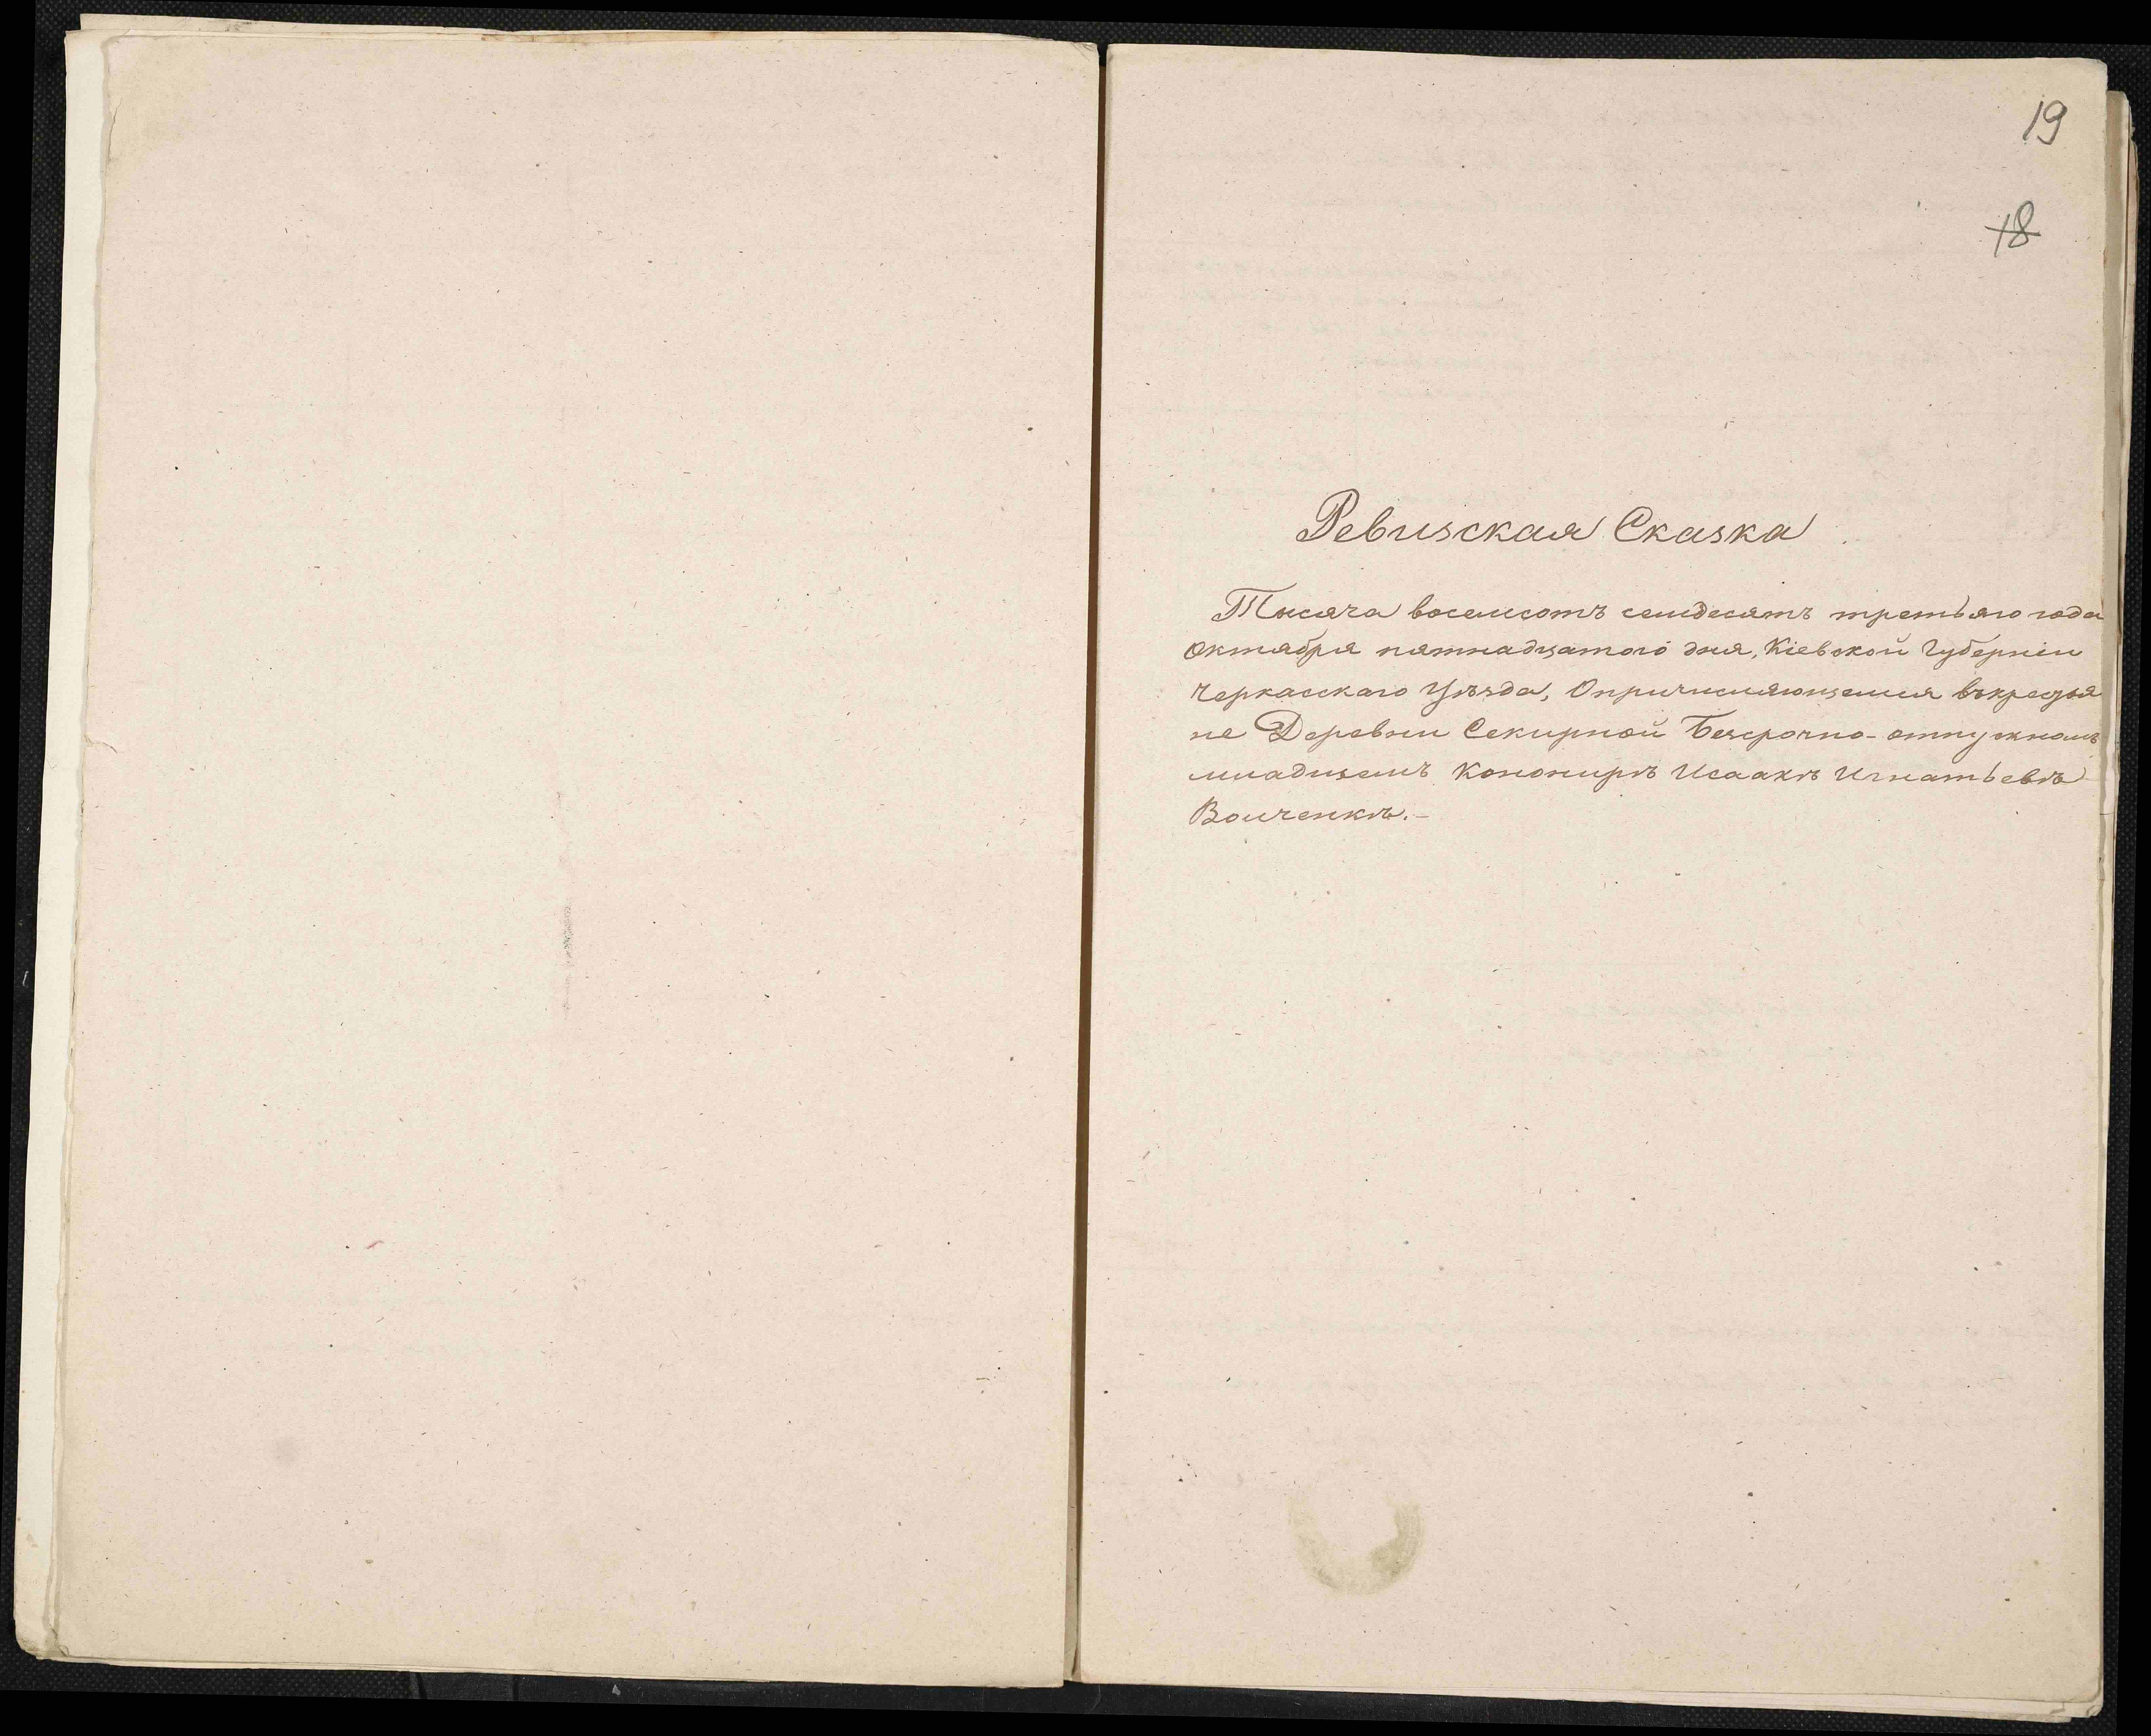 19
18
Ревизская Сказка
Тысяча восемсотъ семдесятъ третьяго года
Октября пятнадцатого дня, Кіевской Губерніи
Черкасскаго Уѣзда, О причисляющемся въ крестья
не Деревни Секирной Безсрочно-отпускномъ
младшемъ Кононирѣ Исаакѣ Игнатьевѣ
Волченкѣ.-